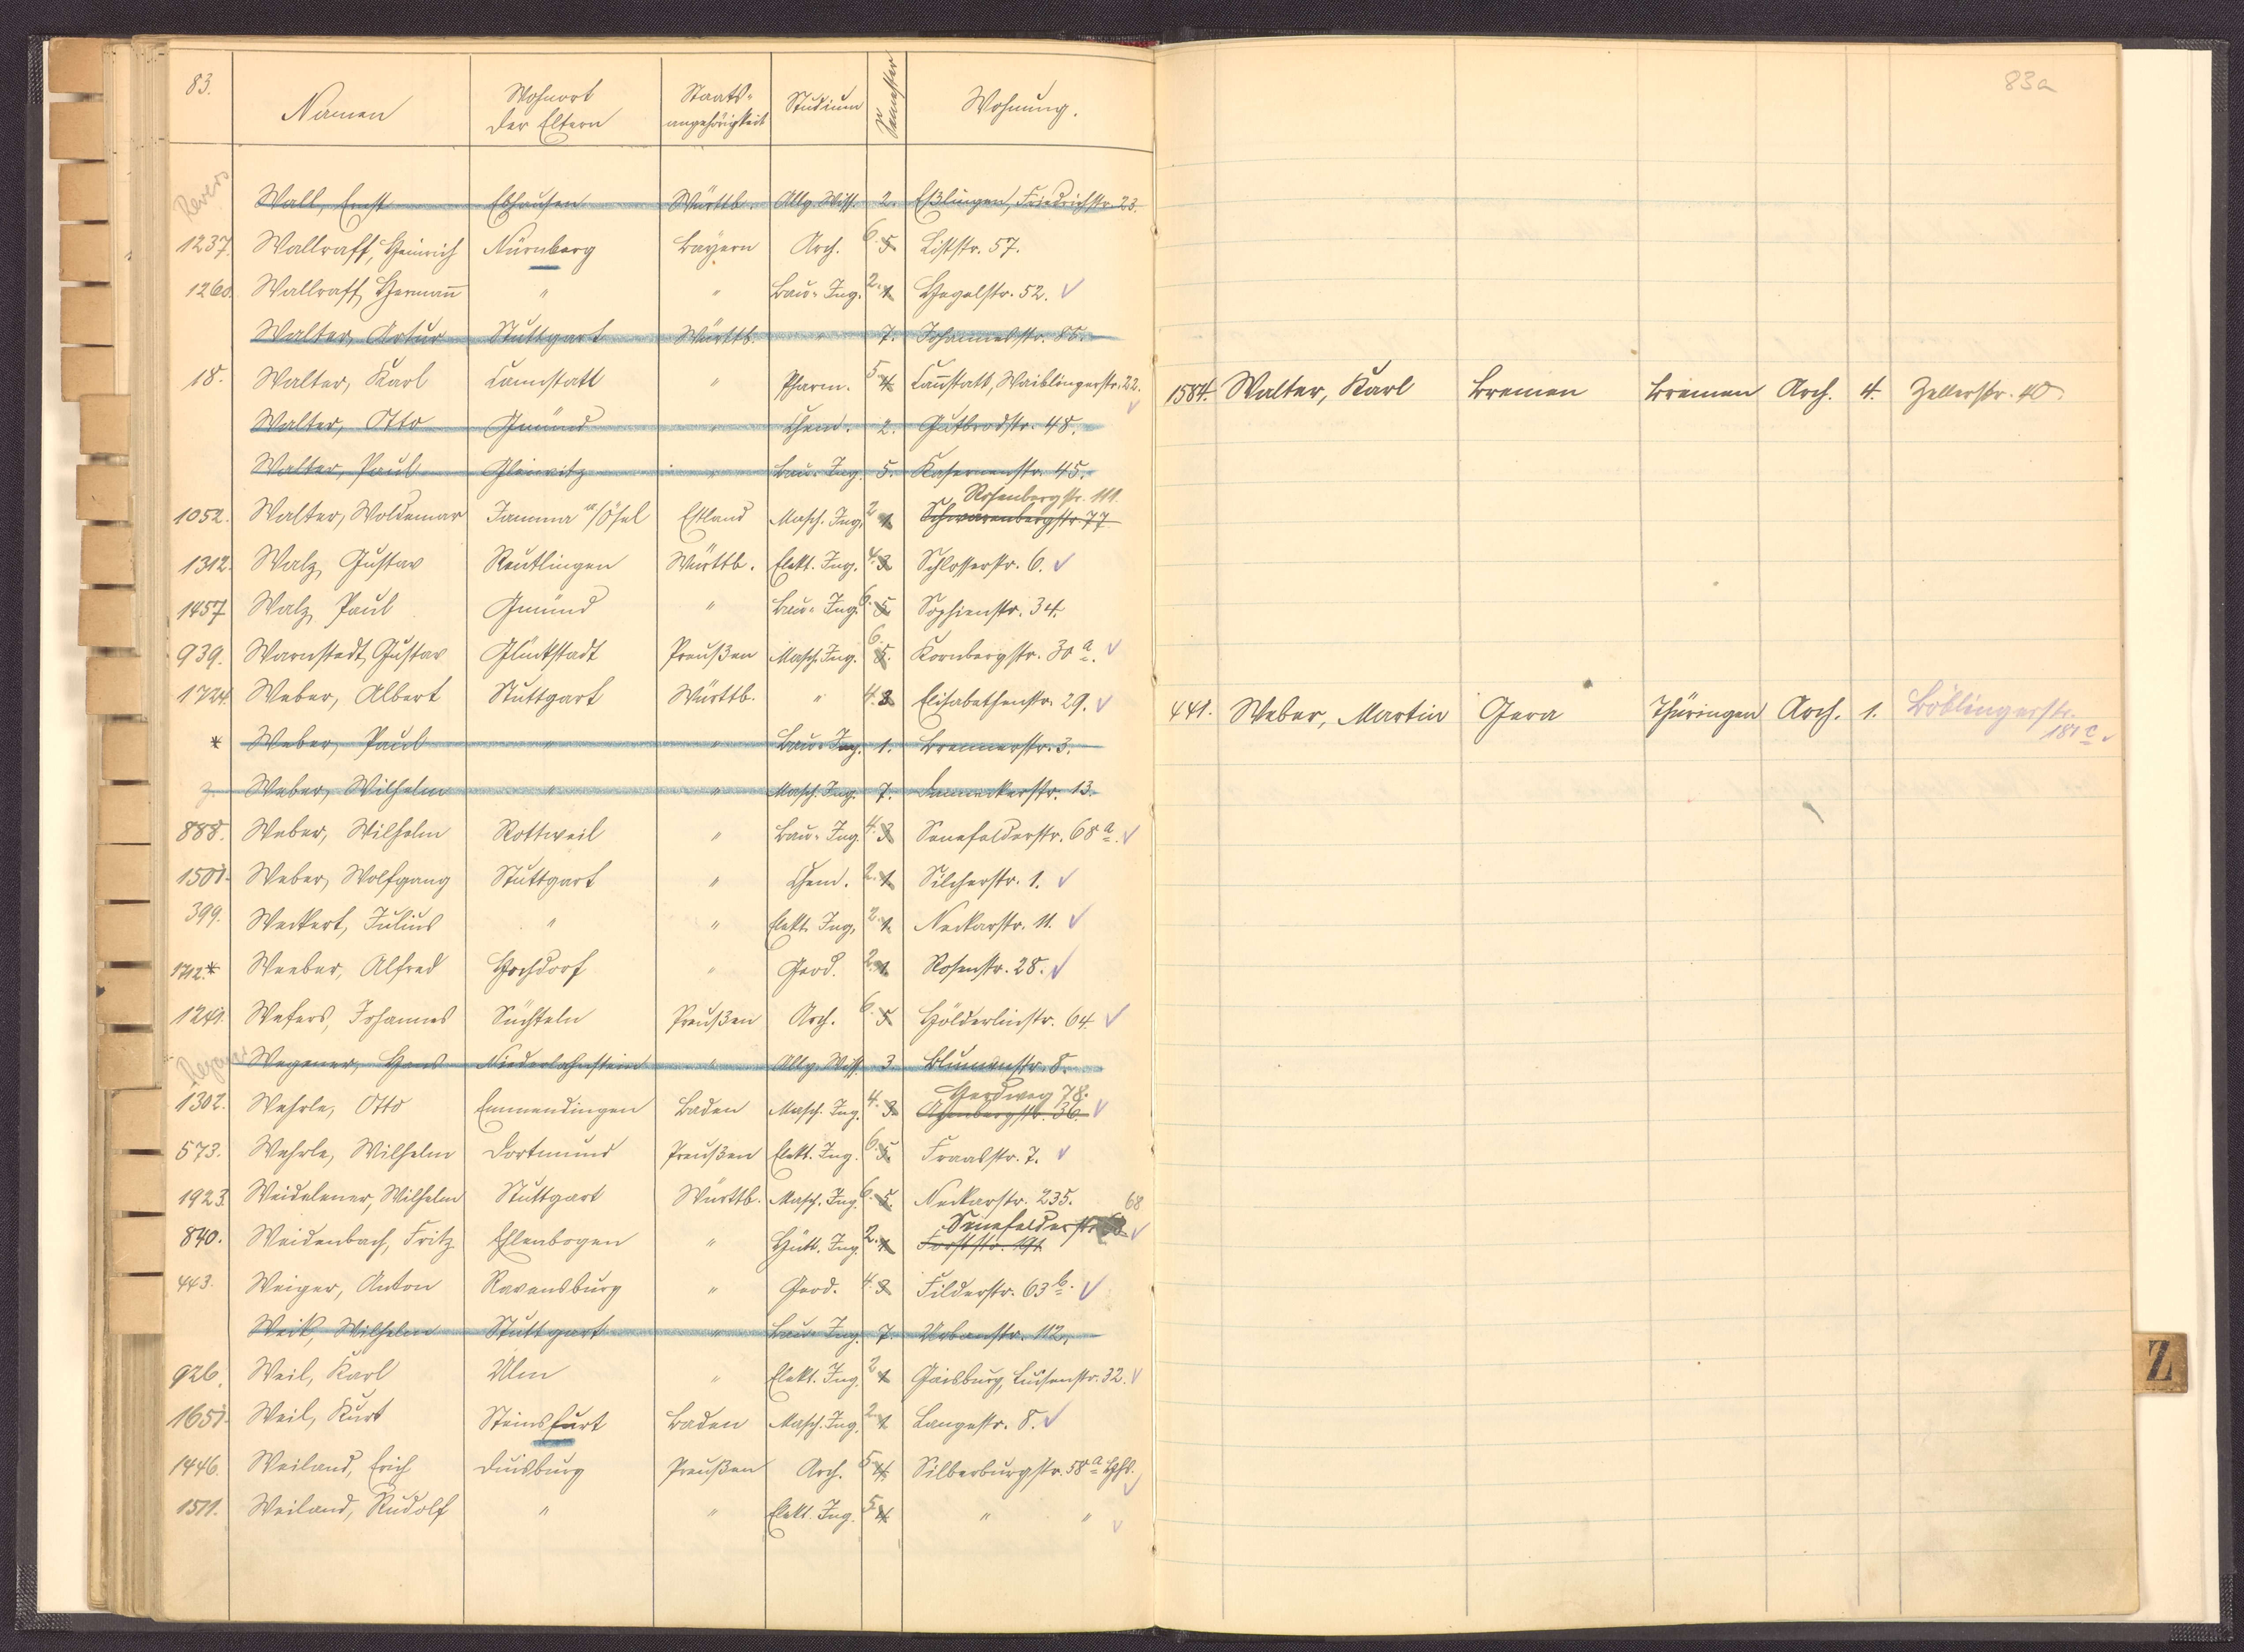 83.
Namen Wohnort der Eltern Staats-angehörigkeit Studium Semester Wohnung.
Revers Wall, Ernst Ebhausen Württb. Allg. Wiss. 2. Eßlingen, Friedrichstr. 23.
1237. Wallraff, Heinrich Nürnberg Bayern Arch. 6. 5. Liststr. 57.
1260. Wallraff, Hermann " " Bau-Ing. 2. 1. Hegelstr. 52. ✓
Walter, Artur Stuttgart Württb. " 7. Johannesstr. 85.
18. Walter, Karl Cannstatt " Pharm. 5. 4. Cannstatt, Waiblingerstr. 22. ✓
Walter, Otto Gmünd " Chem. 2. Gutbrodstr. 48.
Walter, Paul Gleiwitz " Bau-Ing. 5. Kasernenstr. 45.
Rosenbergstr. 111.
1052. Walter, Woldemar Jamma a/Ösel Estland Masch. Ing. 2. 1. Schwarenbergstr. 77
1312. Walz, Gustav Reutlingen Württb. Elekt. Ing. 4. 3. Schlosserstr. 6. ✓
1457 Walz, Paul Gmünd " Bau-Ing. 6. 5. Sophienstr. 34.
939. Warnstedt, Gustav Glückstadt Preußen Masch. Ing. 6. 5. Kornbergstr. 30 a. ✓
1724. Weber, Albert Stuttgart Württb. " 4. 3. Elisabethenstr. 29. ✓
* Weber, Paul " " Bau-Ing. 1. Brennerstr. 3.
Weber, Wilhelm " " Masch. Ing. 7. Danneckerstr. 13.
888. Weber, Wilhelm Rottweil " Bau-Ing. 4. 3. Senefelderstr. 68 a. ✓
1501. Weber, Wolfgang Stuttgart " Chem. 2. 1. Silcherstr. 1. ✓
399. Weckert, Julius " " Elekt. Ing. 2. 1. Neckarstr. 11. ✓
1712.* Weeber, Alfred Hochdorf " Geod. 2. 1. Rosenstr. 28. ✓
1241. Wefers, Johannes Süchteln Preußen Arch. 6. 5. Hölderlinstr. 64 ✓
Wegener, Hans Niederlahnstein " Allg. Wiss. 3. Blumenstr. 8.
Herdweg 78.
1302. Wehrle, Otto Emmendingen Baden Masch. Ing. 4. 3. Azenbergstr. 36. ✓
573. Wehrle, Wilhelm Dortmund Preußen Elekt. Ing. 6. 5. Fraasstr. 7. ✓
1923. Weidelener, Wilhelm Stuttgart Württb. Masch. Ing. 6. 5. Neckarstr. 235.
68
Senefelderstr.
840. Weidenbach, Fritz Ehlenbogen " Hütt. Ing. 2. 1. Forststr. 191 ✓
443. Weiger, Anton Ravensburg " Geod. 4. 3. Filderstr. 63 b. ✓
Weik, Wilhelm Stuttgart " Bau-Ing. 7. Urbanstr. 112.
926. Weil, Karl Ulm " Elekt. Ing. 2. 1. Gaisburg, Luisenstr. 32. ✓
1651. Weil, Kurt Steinsfurt Baden Masch. Ing. 2. 1. Langestr. 8. ✓
1446. Weiland, Erich Duisburg Preußen Arch. 5. 4. Silberburgstr. 58 a Hths. ✓
1511. Weiland, Rudolf " " Elekt. Ing. 5. 4. " " ✓
83a
1584. Walter, Karl Bremen Bremen Arch. 4. Zellerstr. 40
441. Weber, Martin Gera Thüringen Arch. 1. Böblingerstr.
181 c ✓
Z